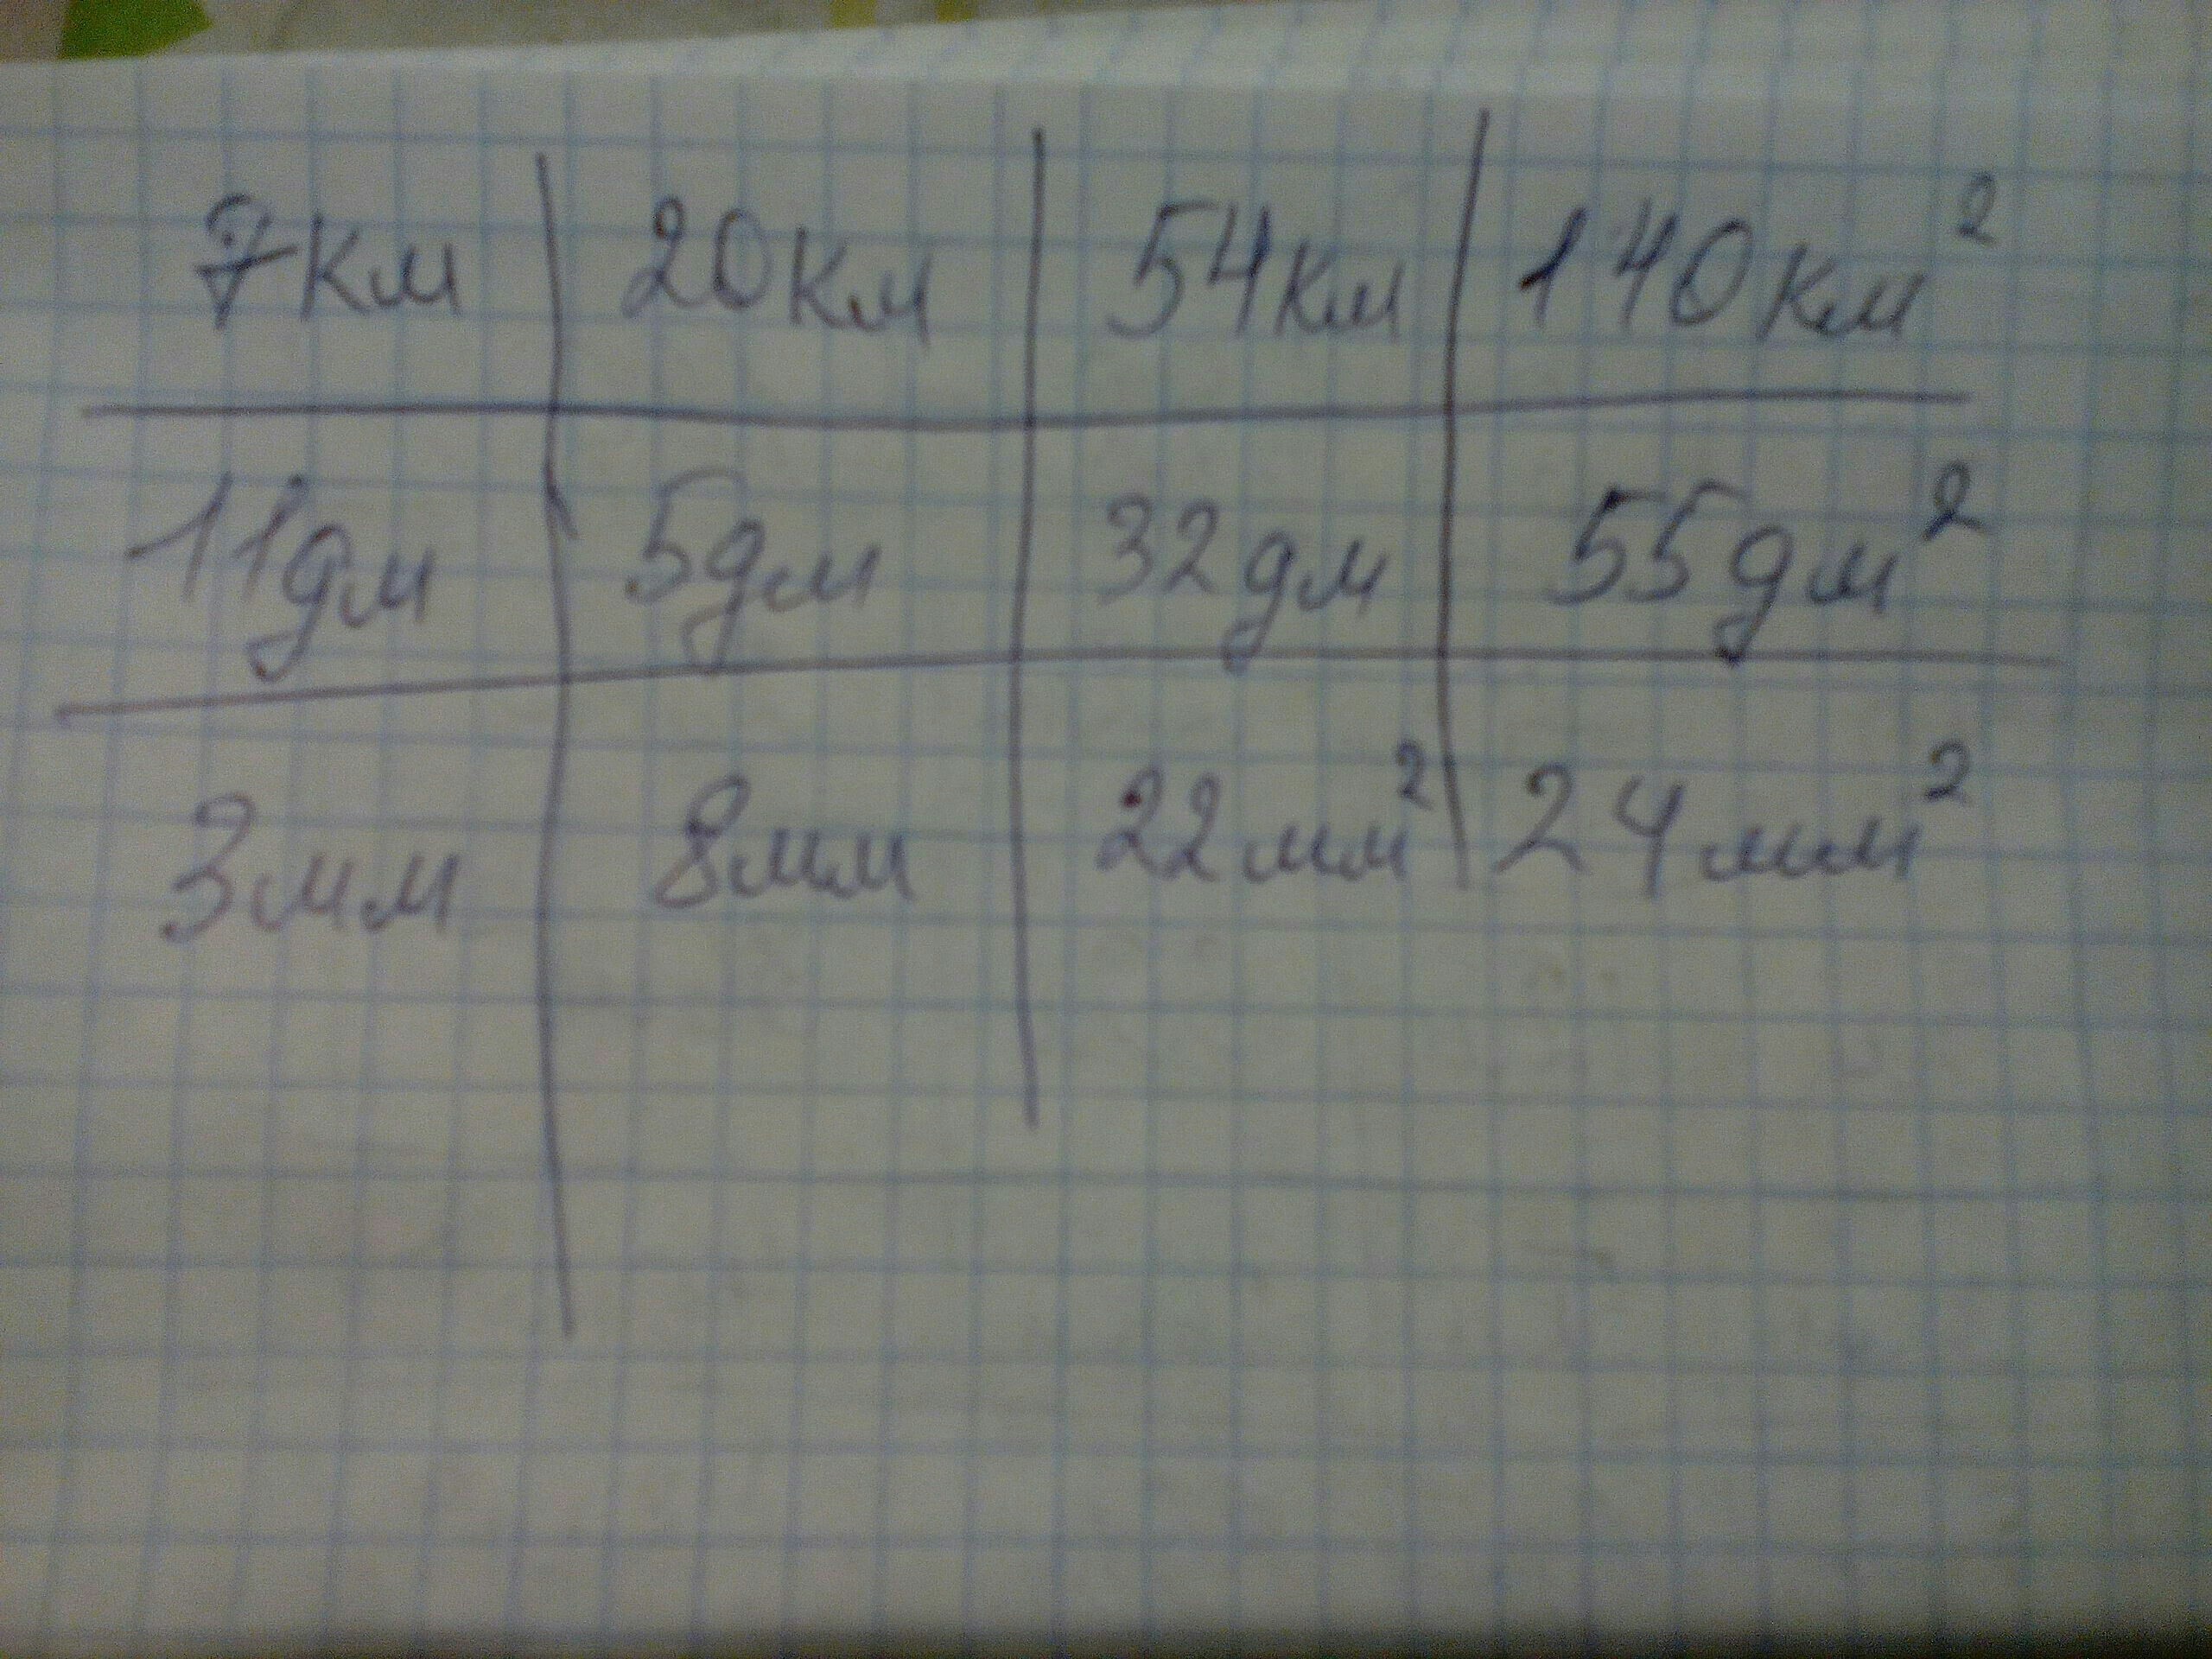 7км 20км 54км 140км²
11дм 5дм 32дм 55дм²
3мм 8мм 22мм² 24мм²